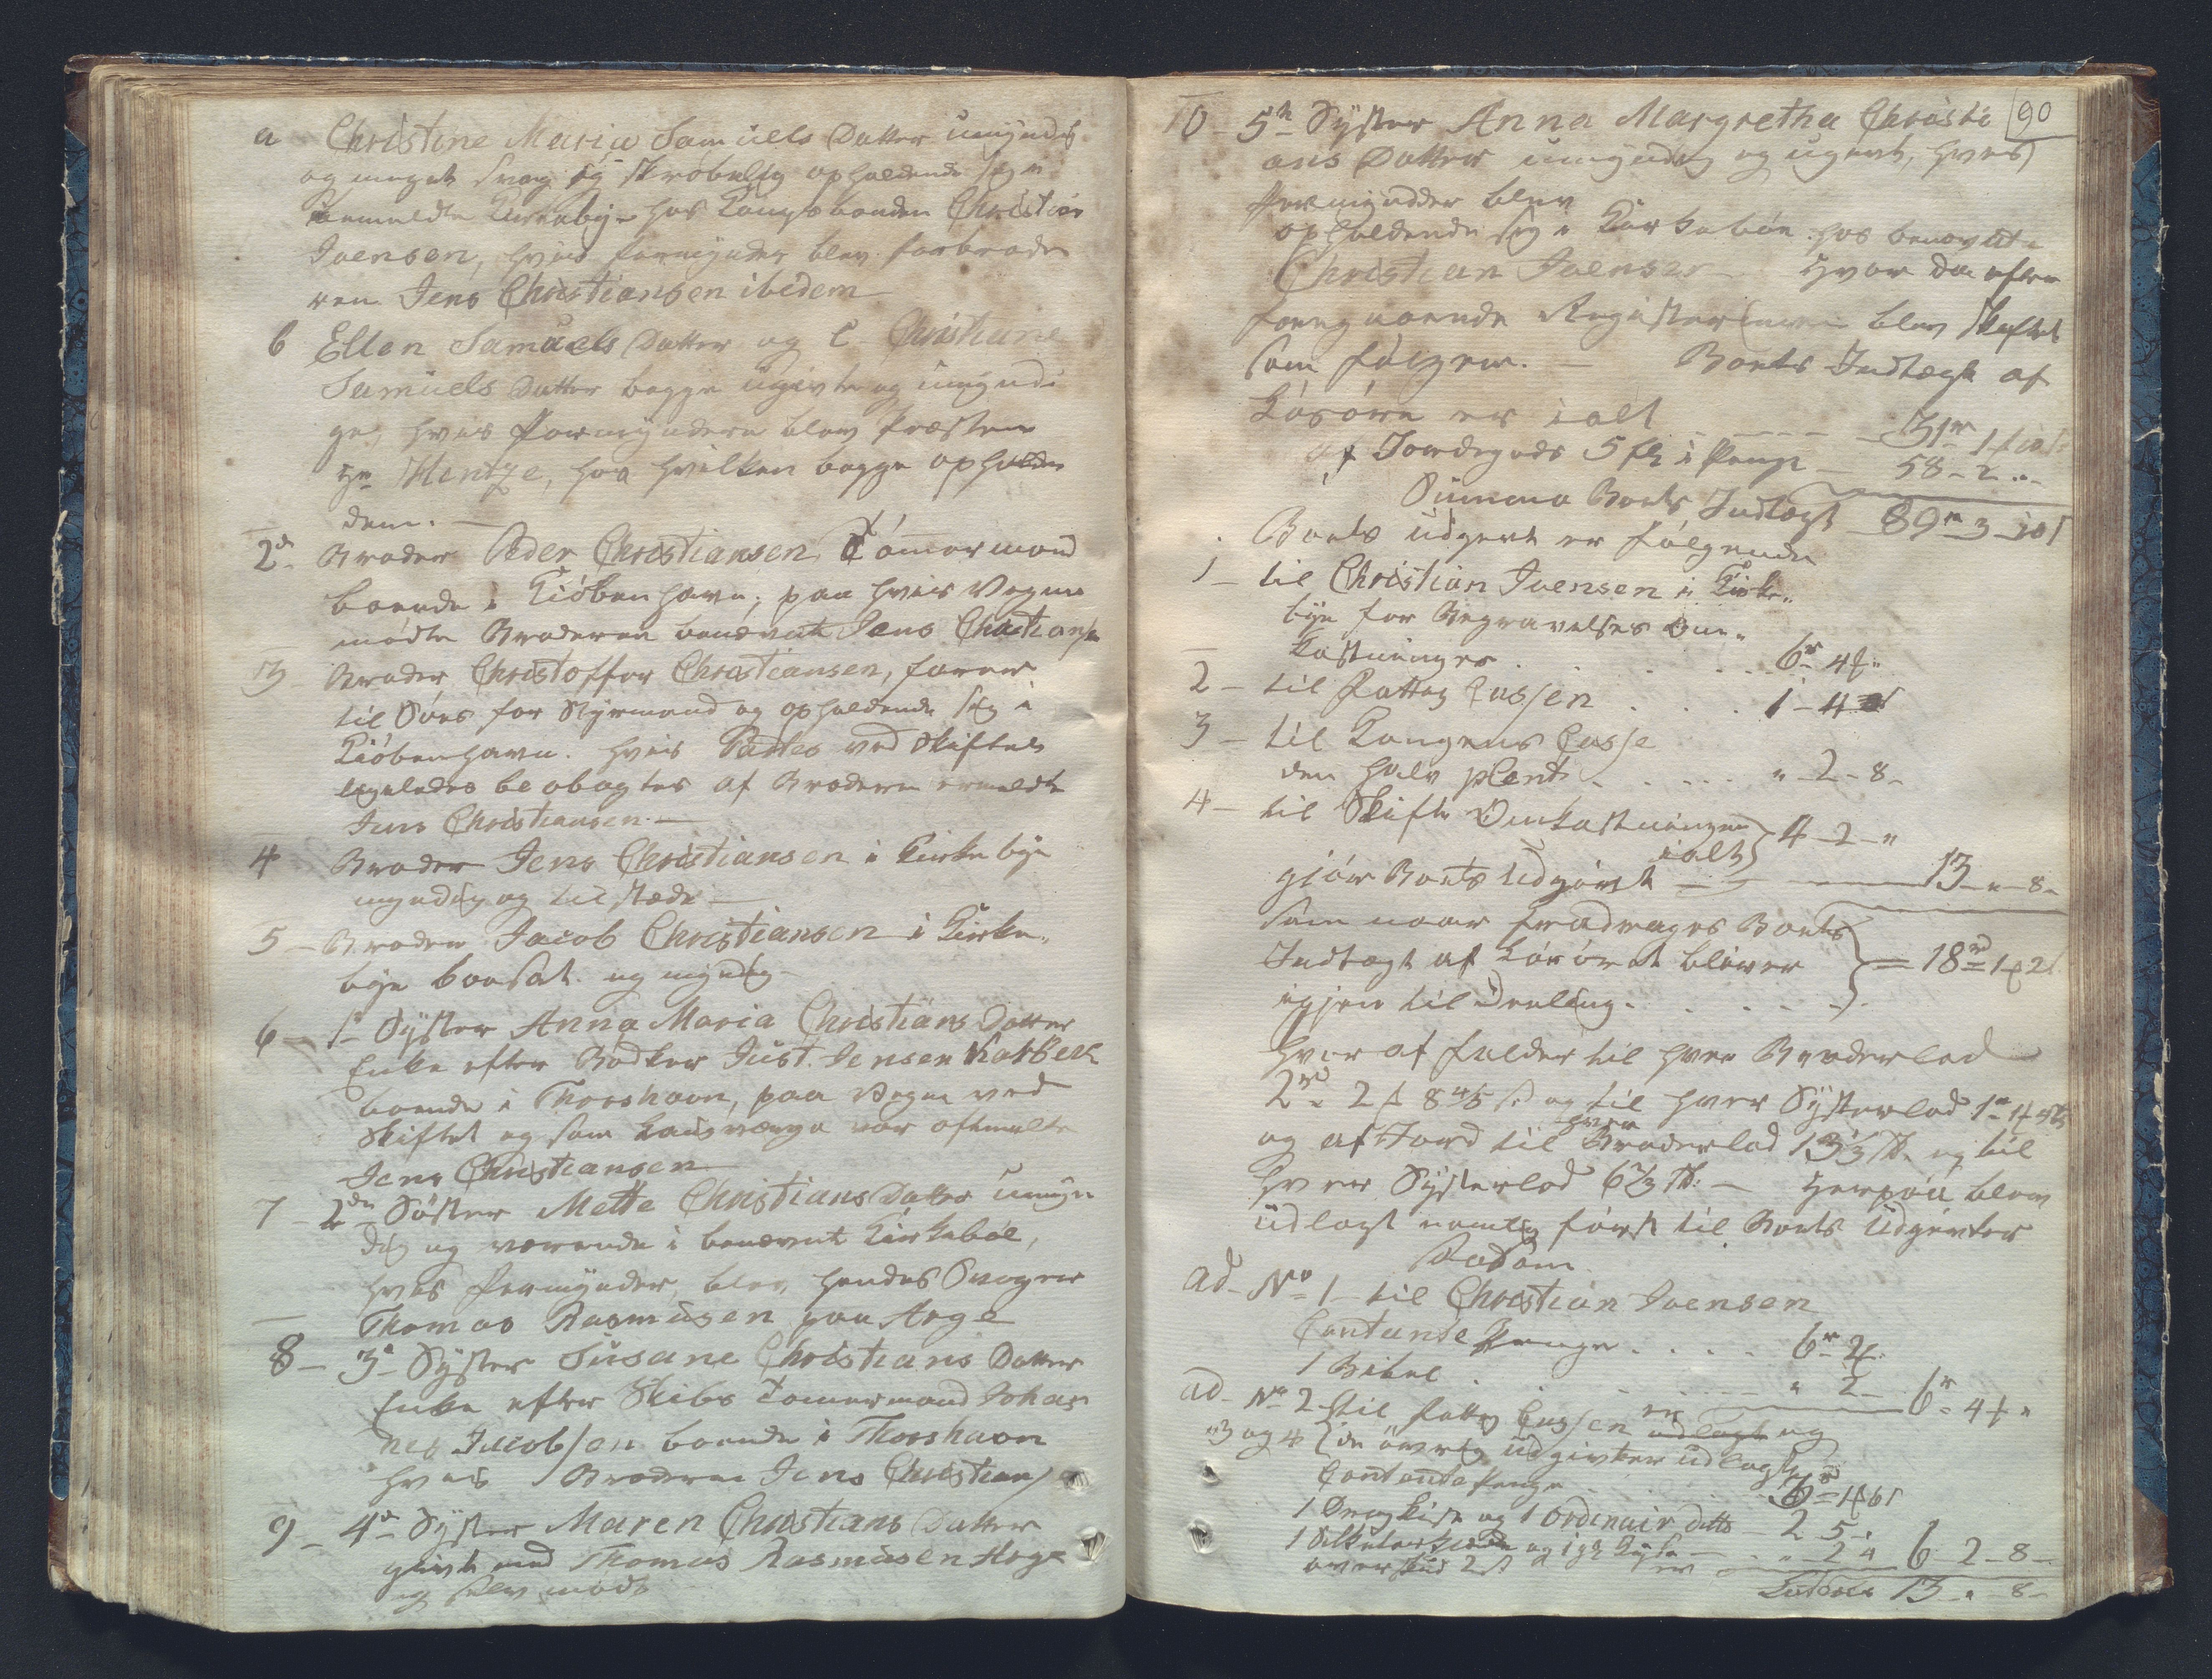 a Christine Maria Samuels Datter umyndig
og meget svag og skrøbelig opholdende sig i
bemeldte Kirkebye hos Kongsbonden Christian
Joensen, hvis formynder blev farbrode
ren Jens Christiansen ibidem
b Ellen Samuels Datter og c Christiane
Samuels Datter begge ugivte og umyndi
ge, hvis Formyndere blev Præsten
Hr Hentze, hos hvilken begge opholde
dem.
2de Broder Peder Christiansen Tømmermand
boende i Kiøbenhavn, paa hvis Vegne
mødte Broderen benævnte Jens Christianse
3 Broder Christoffer Christiansen, farer
til Søes for Styrmand og opholdende sig i
Kiøbenhavn. hvis ved Skiftet
ligeledes beobagtes af Broderen ermeldte
Jens Christiansen.
4 Broder Jens Christiansen i Kirkebye
myndig og tilstæde
5 Broder Jacob Christiansen i Kirke-
bye boesat og myndig
6 1e Syster Anna Maria Christians Datter
Enke efter Bødker Just Jensen
boende i Thorshavn, paa Vegne ved
Skiftet og som Laugværge var oftmeldte
Jens Christiansen
7 2den Søster Mette Christians Datter umyn
dig og værende i benævnte Kirkebøe,
hvis formynder blev hendes Svoger
Thomas Rasmusen paa Arge
8 3e Syster Susane Christians Datter
Enke efter Skibs Tømmermand Johan
nes Jacobsen boende i Thorshavn
hvis Broderen Jens Christians
9 4de Syster Maren Christians Datter
givt med Thomas Rasmusen Arge
og selv mødt
90
10 5te Syster Anna Margretha Christi
ans Datter umyndig og ugivt, hvis
Formynder blev
opholdende sig i Kirkebøe hos benævnte
Christian Joensen Hvor da efter
foregaaende Registering blev skiftet
som følger. Boets Indtægt af
Løsøre er ialt 31r 1f 10s
af Jordegods 5 fl i Penge 58 - 2 -
Summa Boets Indtægt 89r 3 10s
Boets udgivt er følgende
1 til Christian Joensen i Kirke-
bye for Begravelses Om-
kostninger 6r 4f
2 til Fattig Cassen 1 - 4
3 til Kongens Casse
den halv pCent " 2 - 8
4 til Skifte Omkostninger 4 - 2 - "
ialt
giør Boets Udgivt 13 - " - 8
som naar fradrages Boets
Indtægt af Løsøret bliver = 18rd 1f 2s
igien til deeling
hver af falder til hver Broderlod
2rd 2f 8 4/5 s og til hver Systerlod 1r 1f
hver
og af Jord til Broderlod 13 1/3 sk. og til
hver Systerlod 6 2/3 sk. Herpaa blev
udlagt nemlig først til Boets Udgivter
saadan
ad No 1 til Christian Joensen
Contante Penge 6r 2f
1 Bibel " 2 - 6r 4f "
ad No 2 til fattig Cassen er udlagt og
3 og 4 de øvrig udgivter udlagte
Contante Penge
1 Dragkiste og 1 ordinair ditto 2 5 "
og 1 gl. " 2 4 6 2 - 8
overskud 2 s er
Lateris 13 - " - 8